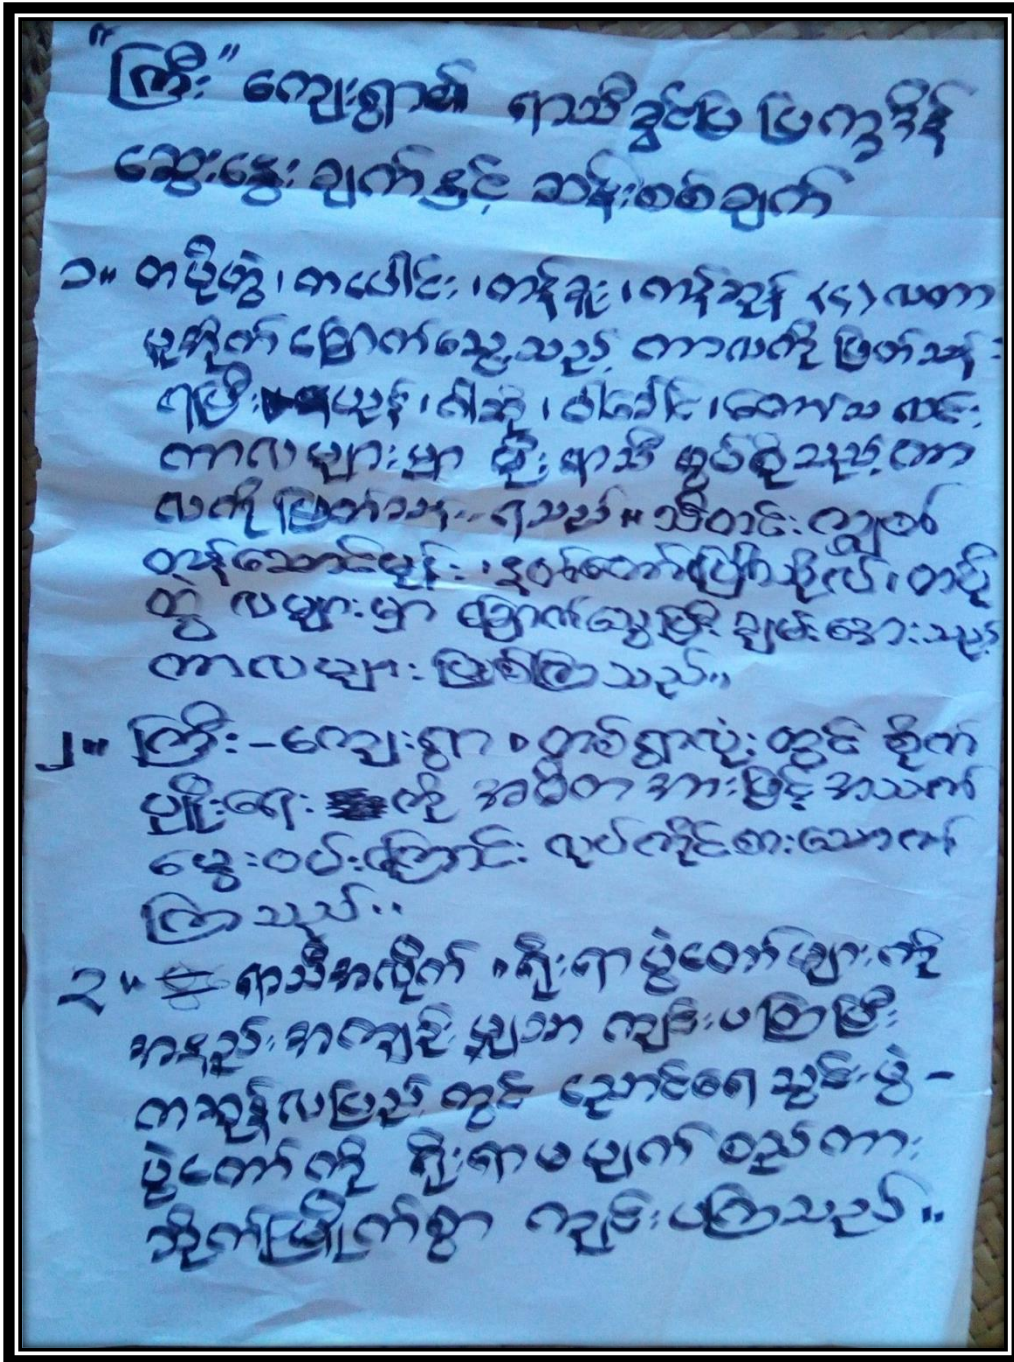 "ကြီး" ကျေးရွာ၏ ရာသီခွင်ပြ ပြက္ခဒိန်
ဆွေးနွေးချက်နှင့် ဆန်းစစ်ချက်
၁။ တပို့တွဲ၊ တပေါင်း၊ တန်ခူး၊ ကဆုန် (၄) လတာ
ပူအိုက်ခြောက်သွေ့သည့် ကာလကို ဖြတ်သန်း
ရပြီး နယုန်၊ ဝါဆို၊ ဝါခေါင်၊ တော်သလင်း
ကာလများမှာ မိုးရာသီ စွပ်စိုသည့်ကာ
လကို ဖြတ်သန်းရသည်။ သီတင်းကျွတ်
တန်ဆောင်မုန်း၊ နတ်တော်၊ ပြာသိုလ်၊ တပို့
တွဲ လများမှာ ခြောက်သွေ့ပြီး ချမ်းအေးသည့်
ကာလများ ဖြစ်ကြသည်။
၂။ ကြီး-ကျေးရွာ၊ တစ်ရွာလုံးတွင် စိုက်
ပျိုးရေးကို အဓိကအားဖြင့် အသက်
မွေးဝမ်းကြောင်း လုပ်ကိုင်စားသောက်
ကြသည်။
၃။ ရာသီအလိုက်၊ ရိုးရာပွဲတော်များကို
အနည်းအကျဉ်းမျှသာ ကျင်းပကြပြီး
ကဆုန်လပြည့်တွင် ညောင်ရေသွန်းပွဲ-
ပွဲတော်ကို ရိုးရာမပျက် စည်ကား
သိုက်မြိုက်စွာ ကျင်းပကြသည်။